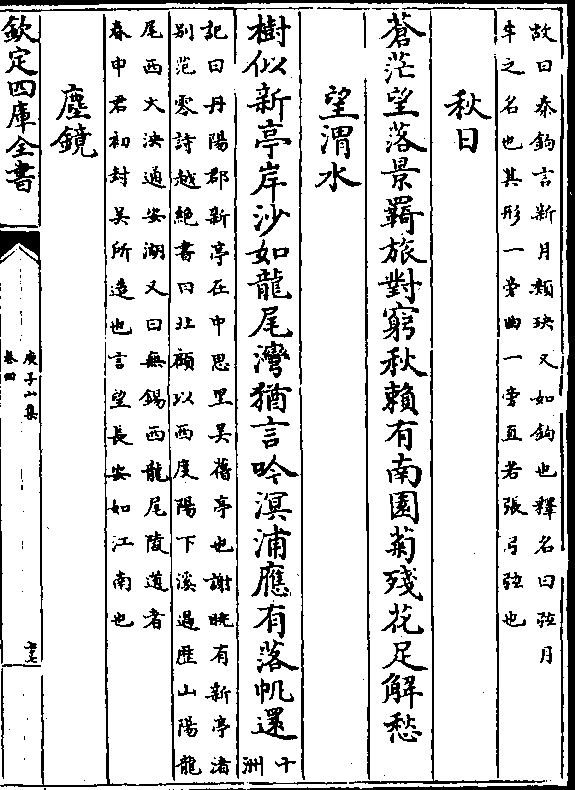 故曰秦鉤言新月類玦又如鉤也釋名曰弦月
半之名也其形一旁曲一旁直若張弓弦也
秋日
蒼茫望落景羇旅對窮秋賴有南園菊殘花足解愁
望渭水
樹似新亭岸沙如龍尾灣猶言吟溟浦應有落帆還
十洲
記曰丹陽郡新亭在中思里吳舊亭也謝朓有新亭渚
别范零詩越絶書曰北顧以西度陽下溪過歴山陽龍
尾西大決通安湖又曰無錫西龍尾陵道者
春申君初封吳所造也言望長安如江南也
塵鏡
欽定四庫全書
庾子山集
卷四